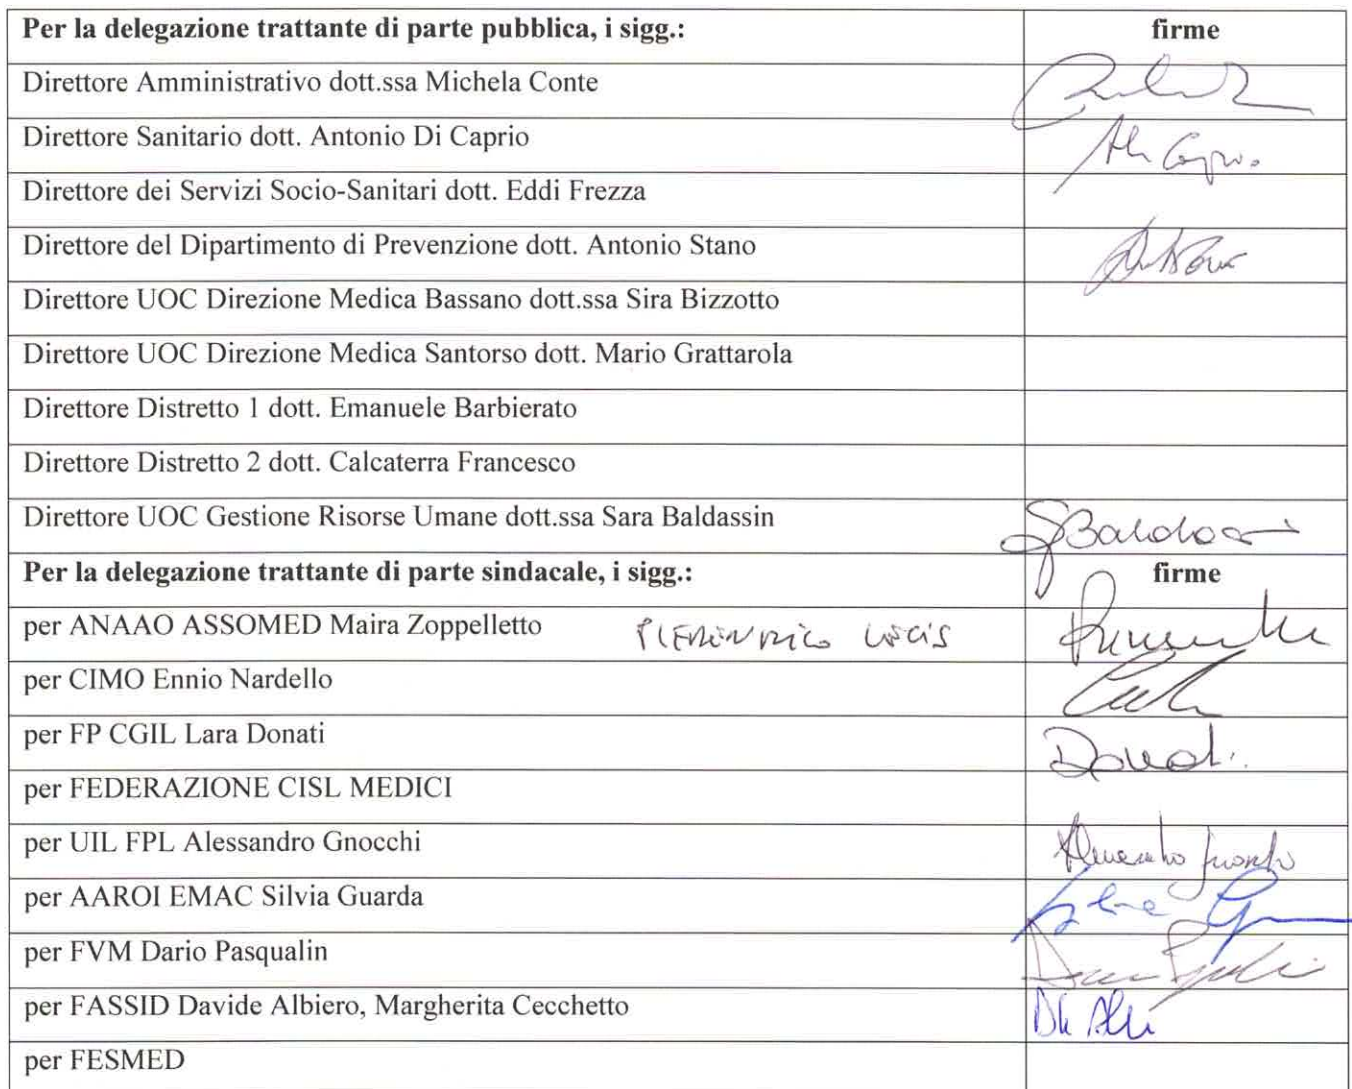 Per la delegazione trattante di parte pubblica, i sigg.: firme
Direttore Amministrativo dott.ssa Michela Conte
Direttore Sanitario dott. Antonio Di Caprio
Direttore dei Servizi Socio-Sanitari dott. Eddi Frezza
Direttore del Dipartimento di Prevenzione dott. Antonio Stano
Direttore UOC Direzione Medica Bassano dott.ssa Sira Bizzotto
Direttore UOC Direzione Medica Santorso dott. Mario Grattarola
Direttore Distretto 1 dott. Emanuele Barbierato
Direttore Distretto 2 dott. Calcaterra Francesco
Direttore UOC Gestione Risorse Umane dott.ssa Sara Baldassin
Per la delegazione trattante di parte sindacale, i sigg.: firme
per ANAAO ASSOMED Maira Zoppelletto
per CIMO Ennio Nardello
per FP CGIL Lara Donati Donati
per FEDERAZIONE CISL MEDICI
per UIL FPL Alessandro Gnocchi
per AAROI EMAC Silvia Guarda
per FVM Dario Pasqualin
per FASSID Davide Albiero, Margherita Cecchetto
per FESMED